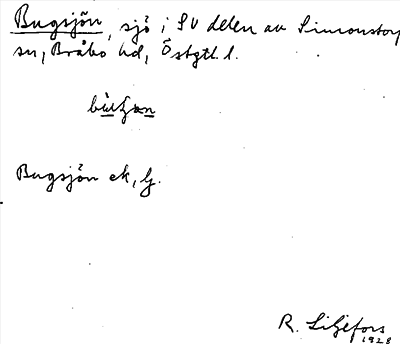 Bugsjön, sjö i SV delen av Simonstorp
sn, Bråbo hd, Östgtl. l.
Bugsjön ek, lj.
R. Liljefors
1928